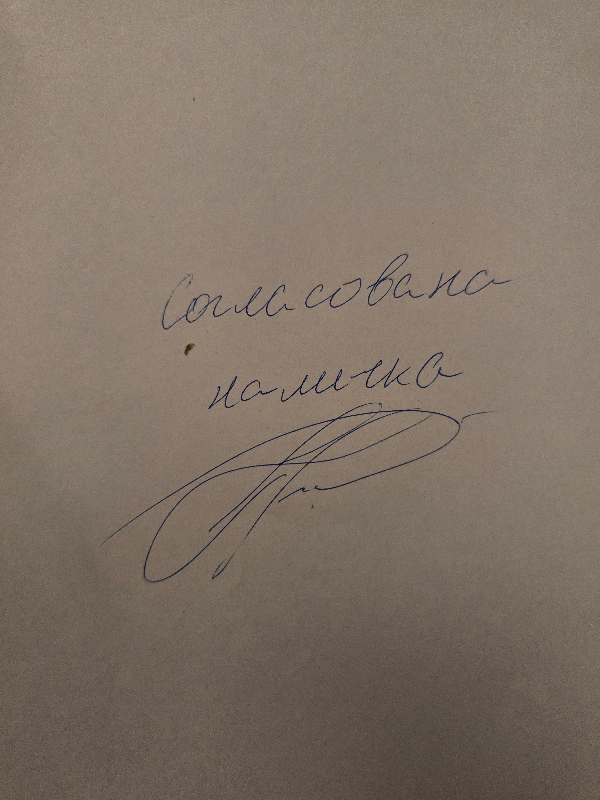 Согласована
наличка